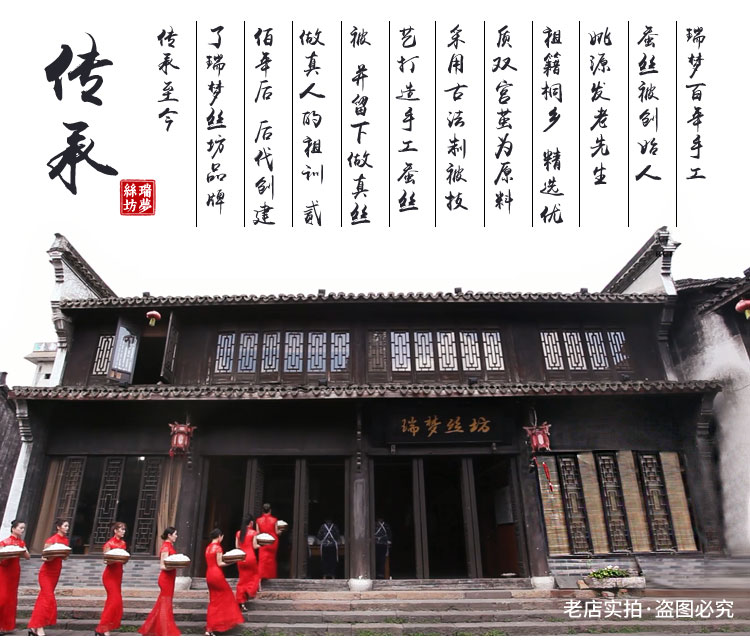 传承
瑞夢
絲坊
瑞梦百年手工
蚕丝被创始人
姚源发老先生
祖籍桐乡 精选优
质双宫茧为原料
采用古法制被技
艺打造手工蚕丝
被 并留下做真丝
做真人的祖训 贰
佰年后 后代创建
了瑞梦丝坊品牌
传承至今
瑞梦丝坊
老店实拍·盗图必究